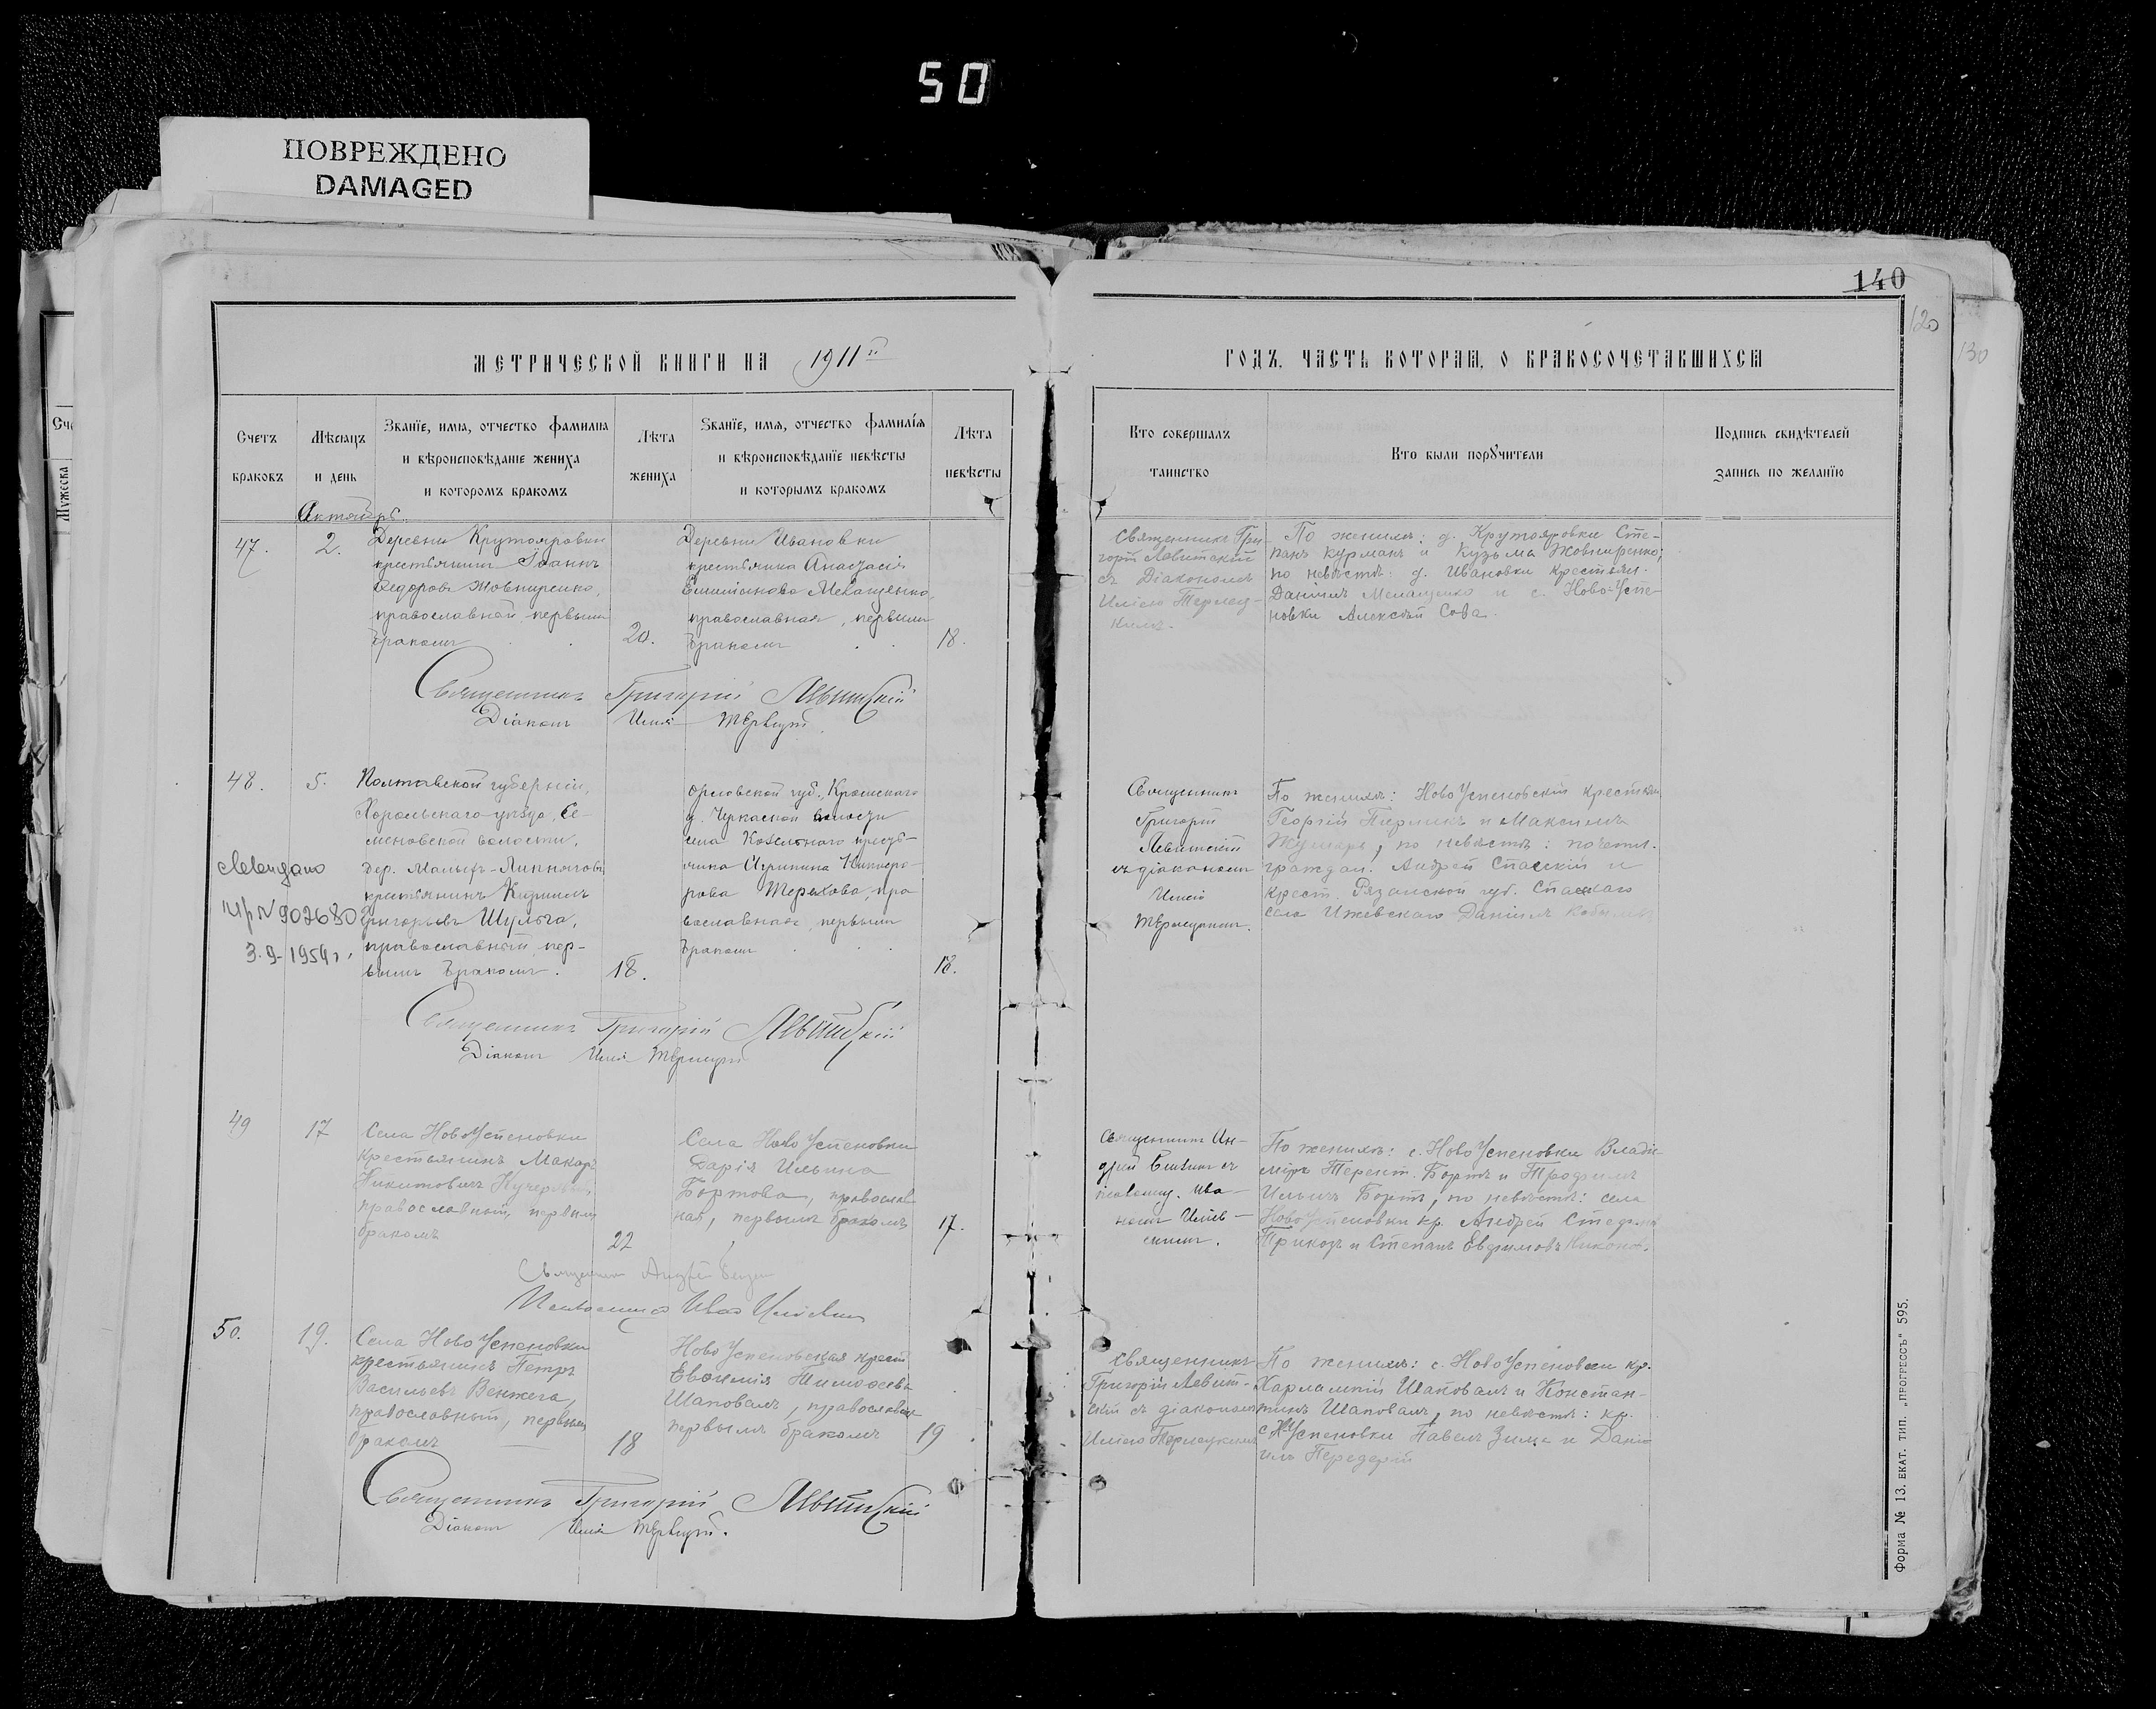 50
ПОВРЕЖДЕНО
DAMAGED
140
120
130
МЕТРИЧЕСКОЙ КНИГИ НА 1911й
ГОДЪ, ЧАСТЬ ВТОРАЯ, О БРАКОСОЧЕТАВШИХСЯ
Счетъ
браковъ
Мѣсяцъ
и день
Званіе, имя, отчество фамилия
и вѣроисповѣданіе жениха
и которомъ бракомъ
Лѣта
жениха
Званіе, имя, отчество фамилія
и вѣроисповѣданіе невѣсты
и которымъ бракомъ
Лѣта
невѣсты
Кто совершалъ
таинство
Кто были поручители
Подпись свидѣтелей
запись по желанію
Октябрь.
47.
2.
Деревни Крутояровки
крестьянинъ Іоаннъ
Федоровъ Жовниренко,
православный, первымъ
бракомъ
20.
Деревни Ивановки
крестьянка Анастасія
православная, первымъ
бракомъ
18.
Священникъ Гри-
горій Левитскій
съ Діакономъ
Иліею Терлец-
кимъ.
По женихѣ: д. Крутояровки Сте-
панъ Курманъ и Кузьма Жовниренко;
по невѣстѣ: д. Ивановки крестьян.
Даніилъ и с. Ново-Успе-
новки Алексѣй Сова.
Священникъ Григорій Левитскій
Діаконъ Илія Терлецкій
48.
5.
Полтавской губерніи,
Хорольскаго уѣзда, Се-
меновской волости,
дер. Малыхъ-Липняговъ
крестьянинъ Кириллъ
Григорьевъ Шульга,
православный, пер-
вымъ бракомъ.
18.
Орловской губ., Кромскаго
у. Черкаской волости
села Козельного кресть-
янка
Терехова, пра
вославная, первымъ
бракомъ
18.
№ 902680
3.9-1954г.
Священникъ
Григорій
Левитскій
съ діакономъ
Иліею
Терлецкимъ.
По женихѣ: НовоУспеновскій крестьян.
Георгій и Максимъ
по невѣстѣ: почетн.
граждан. Андрей Спасскій и
крест. Рязанской губ. Спаскаго
села Ижевскаго Даніилъ
Священникъ Григорій Левитскій
Діаконъ Илія Терлецкій
49
17
Села НовоУспеновки
крестьянинъ Макаръ
Никитовичъ
православный, первымъ
бракомъ
22
Села НовоУспеновки
Дарія Ильина
Бортова, православ
ная, первымъ бракомъ
17.
Священникъ Ан-
дрей съ
псаломщ. Ива-
номъ
По женихѣ: с. НовоУспеновки Влади-
міръ Терент. Бортъ и Трофимъ
Ильичъ Бортъ, по невѣстѣ: села
НовоУспеновки кр. Андрей
и Степанъ Евфимовъ
Священникъ Андрей
Псаломщикъ Иванъ
50.
19.
Села НовоУспеновки
крестьянинъ Петръ
Васильевъ Венжега,
православный, первымъ
бракомъ
18
НовоУспеновская крест
Евфимія Тимофеева
Шаповалъ, православная
первымъ бракомъ
19
Священникъ
Григорій Левит-
скій съ діакономъ
Иліею Терлецкимъ
По женихѣ: с. НовоУспеновки кр.
Харлампій Шаповалъ и Констан-
тинъ Шаповалъ, по невѣстѣ: кр.
с. Н-Успеновки Павелъ Зима и Дані-
илъ Передерій
Священникъ Григорій Левитскій
Діаконъ Илія Терлецкій.
Форма № 13. ЕКАТ. ТИП. „ПРОГРЕССЪ" 595.